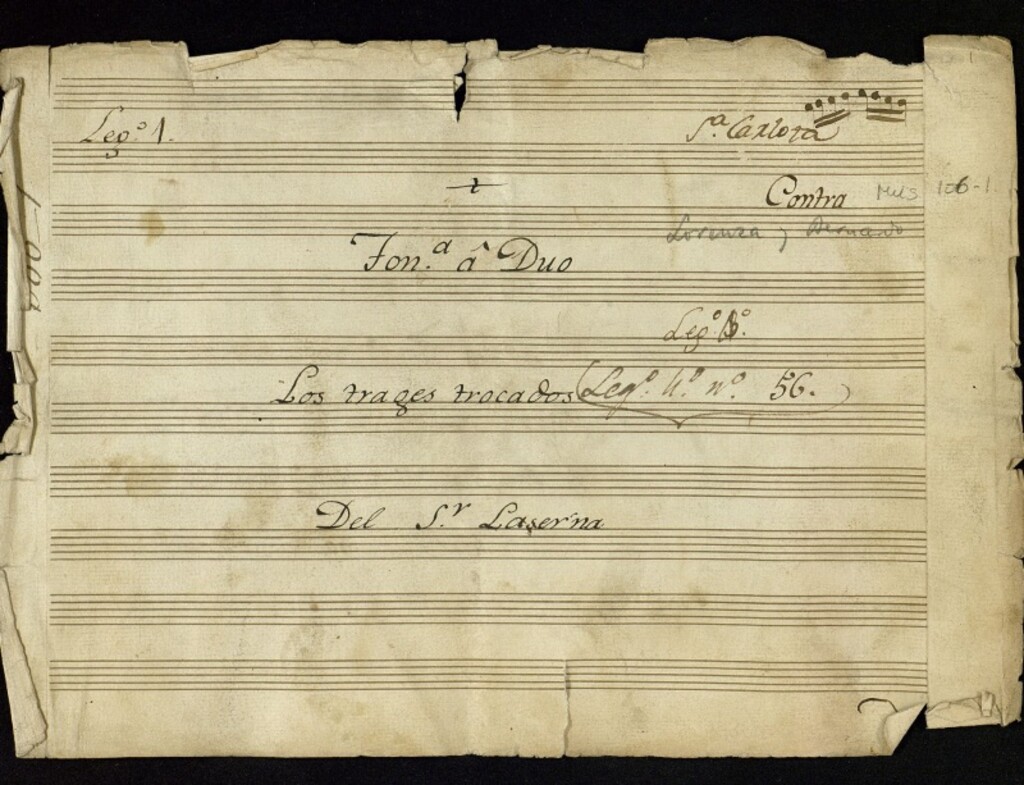 Leg.º 1.
S.ª Carlota
Contra
Mus 106-1.
Lorenza y Bernardo
Ton.ª â Duo
Leg.º
Los trages trocados (Leg.º 4.º n.º 56.)
Del S.r Laserna